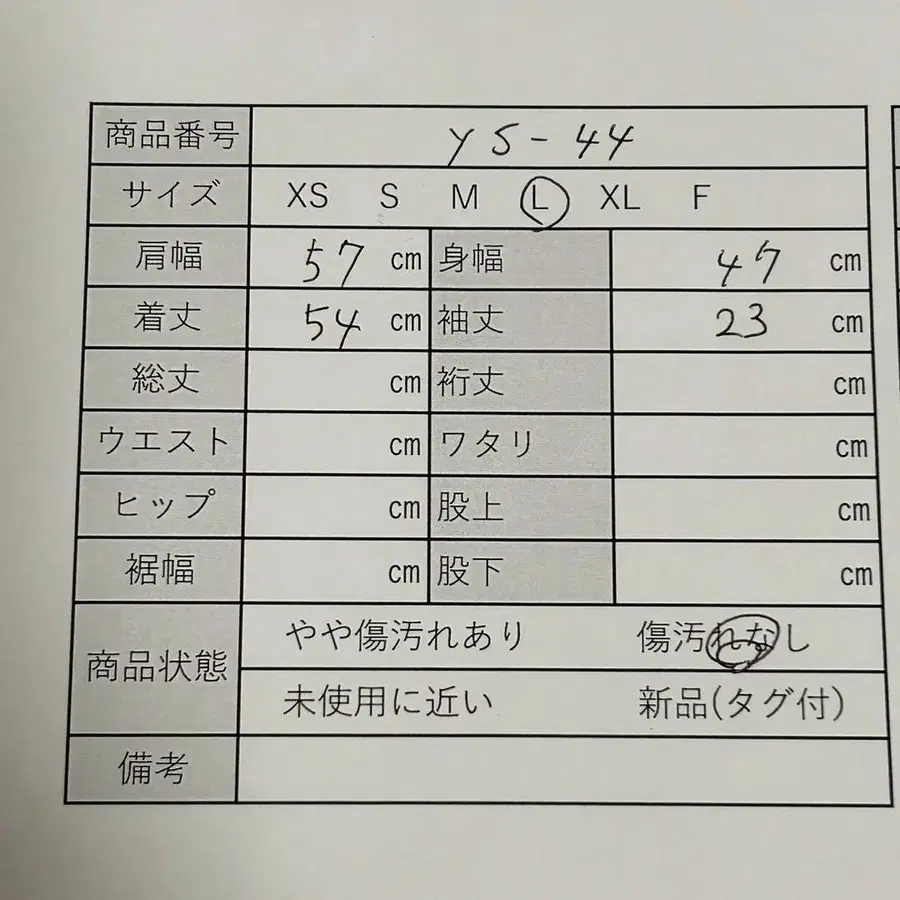 商品番号 YS-44
サイズ XS S M L XL F
肩幅 57 cm 身幅 47 cm
着丈 54 cm 袖丈 23 cm
総丈 cm 裄丈 cm
ウエスト cm ワタリ cm
ヒップ cm 股上 cm
裾幅 cm 股下 cm
商品状態 やや傷汚れあり 傷汚れなし
未使用に近い 新品(タグ付)
備考